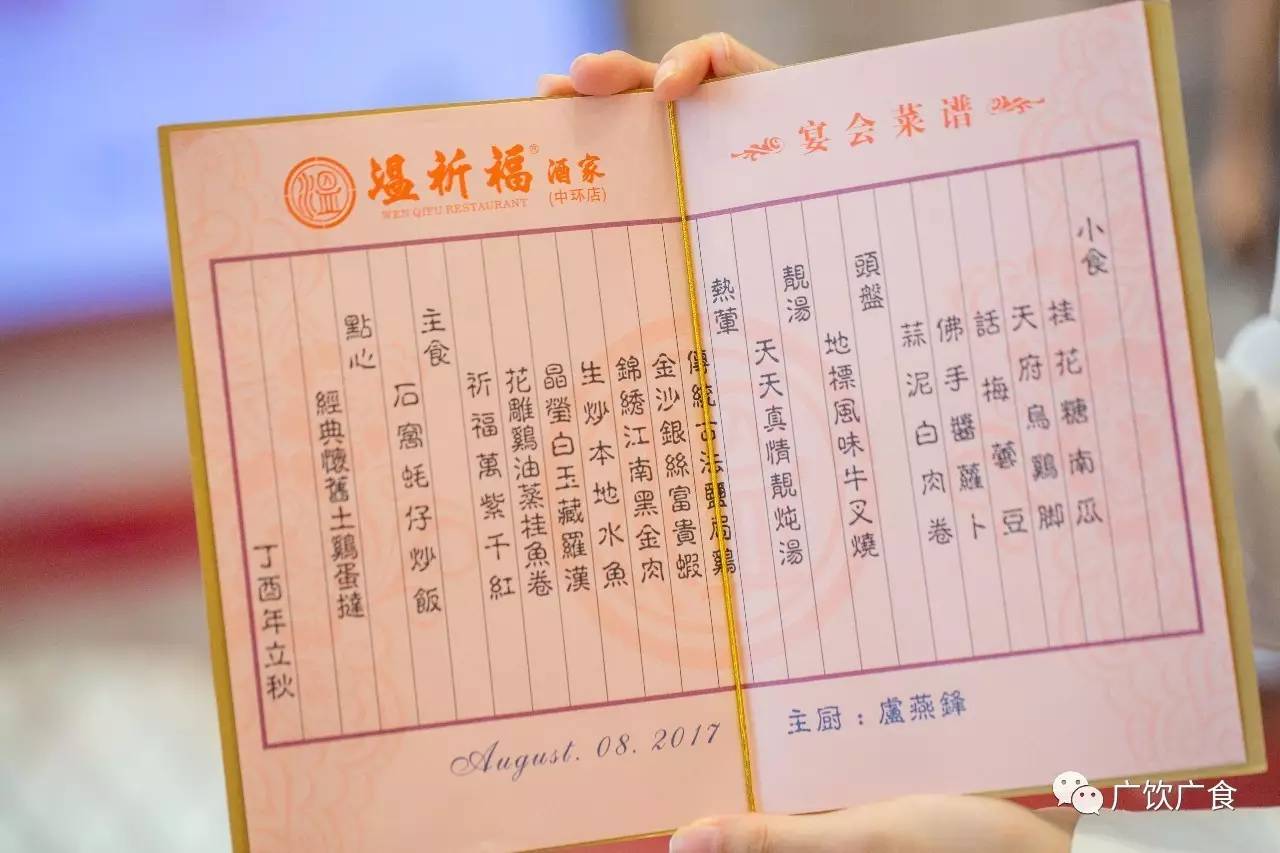 宴会菜谱
小食
桂花糖南瓜
天府烏鷄脚
話梅蕓豆
佛手醬蘿卜
蒜泥白肉卷
頭盤
地標風味牛叉燒
靚湯
天天真情靚炖湯
熱葷
傳統古法鹽焗鷄
金沙銀絲富貴蝦
錦綉江南黑金肉
生炒本地水魚
晶瑩白玉藏羅漢
花雕鷄油蒸桂魚卷
祈福萬紫千紅
主食
石窩蚝仔炒飯
點心
經典懷舊土鷄蛋撻
丁酉年立秋
主厨：盧燕鋒
溫
溫祈福®酒家
(中环店)
WEN QIFU RESTAURANT
August. 08. 2017
广饮广食